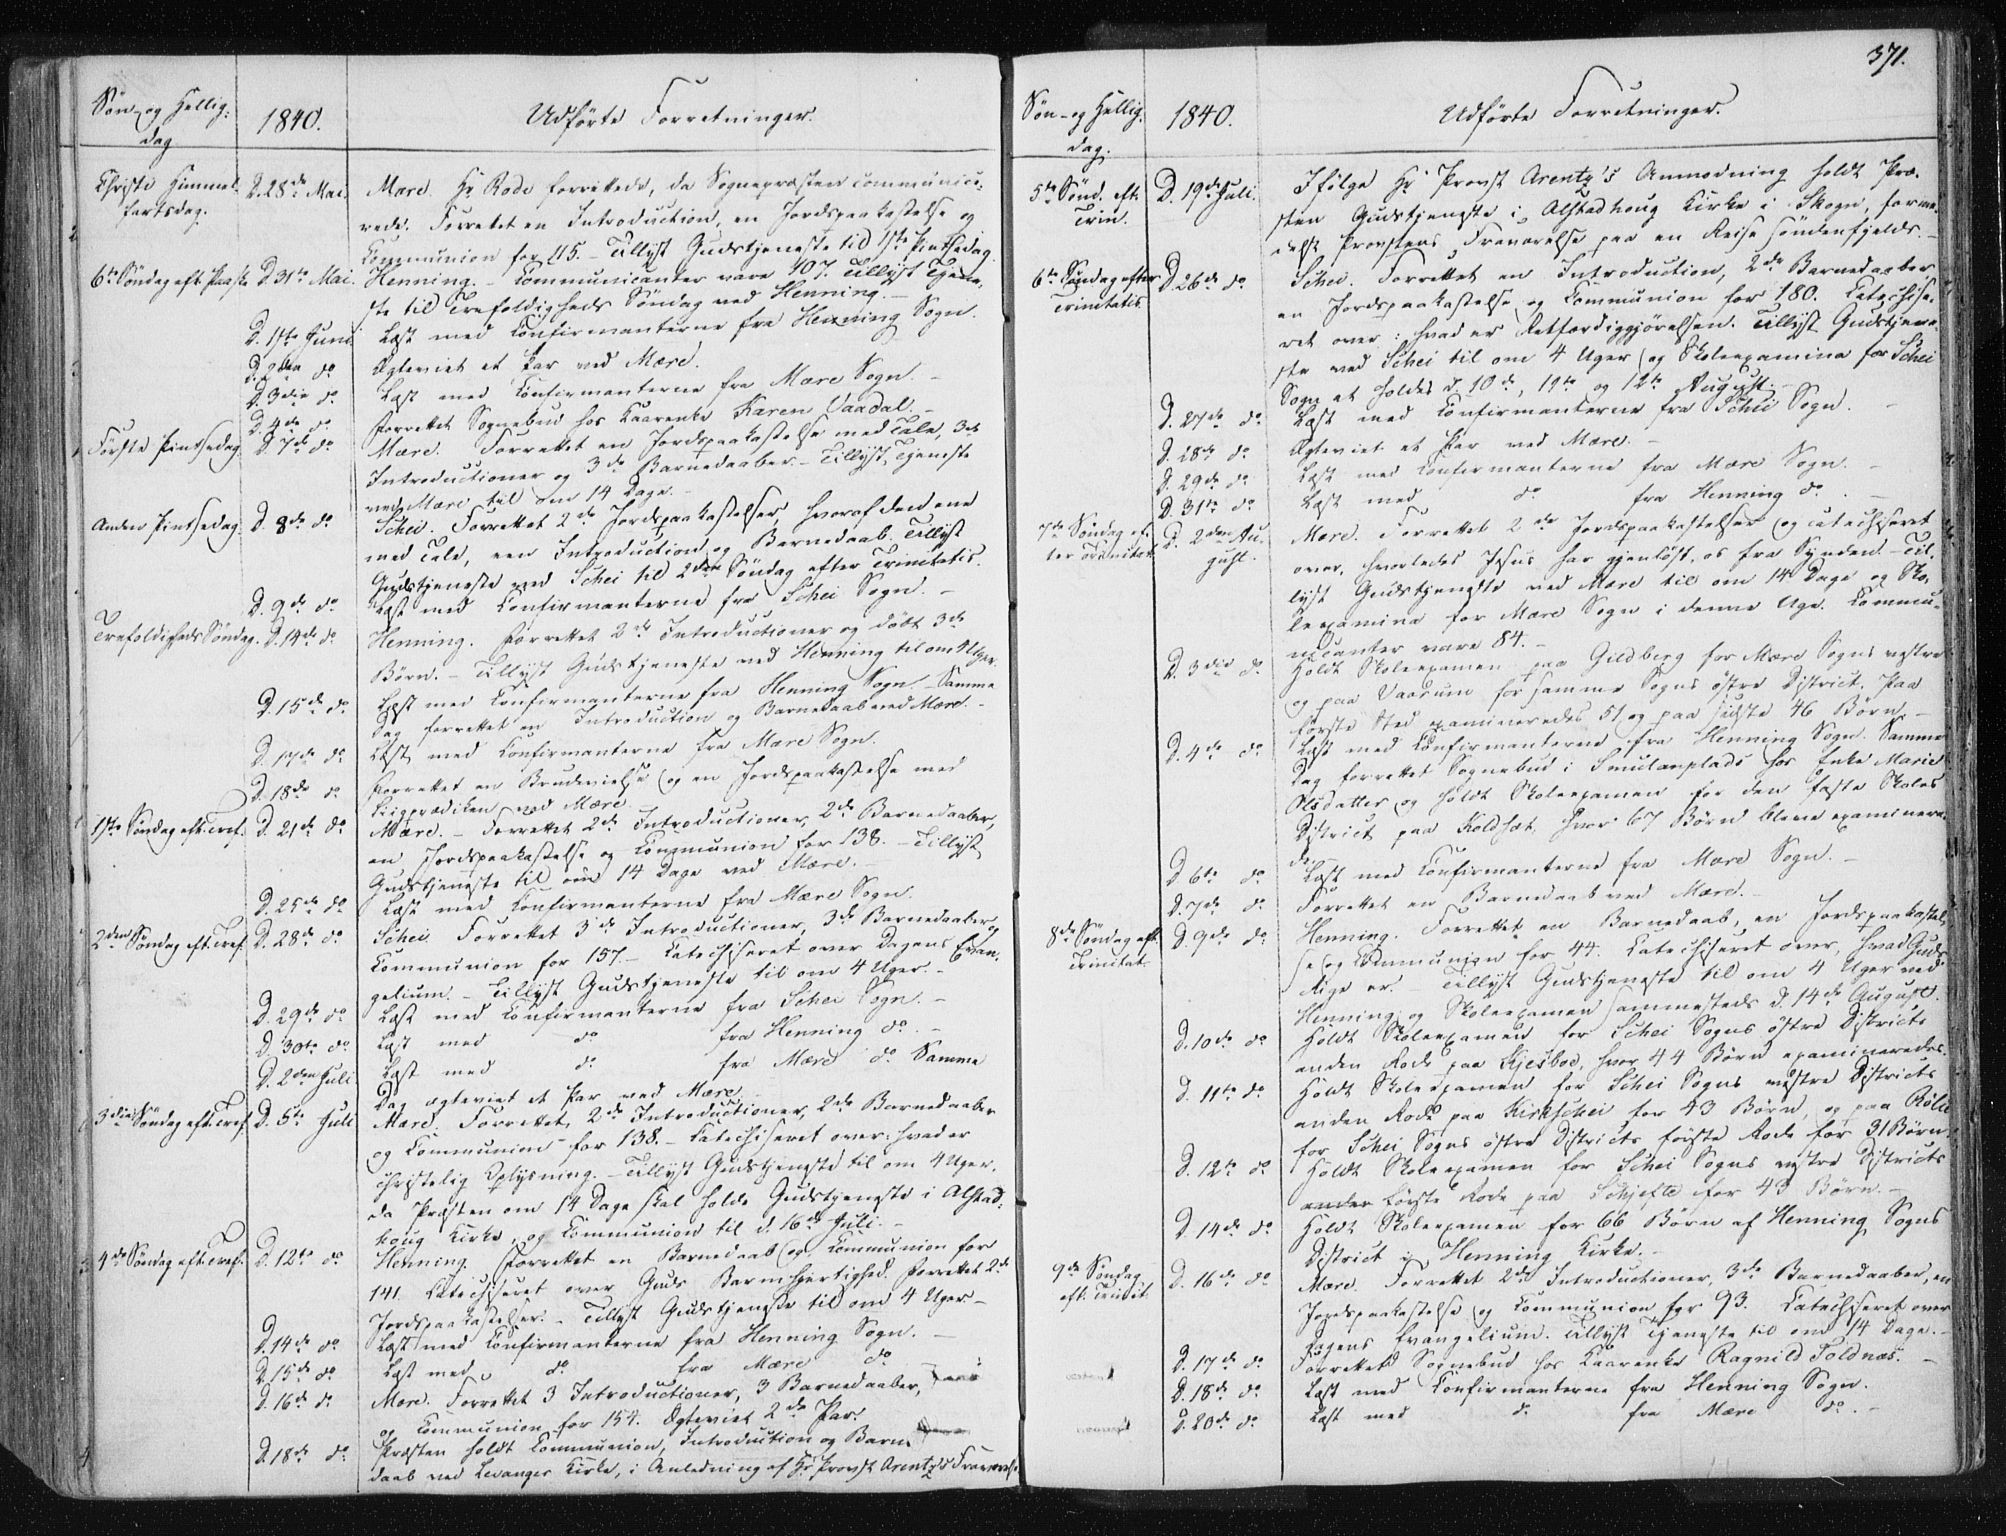 Søn- og Hellig-
dag
1840.
Udførte Forretninger.
Christi Himmel-
fartsdag.
D. 28de Mai.
Mære. Hr Rode forrettede, da Sognepræsten communice-
rede. Forrettet en Introduction, en Jordspaakastelse og
Communion for 115. – Tillyst Gudstjeneste til 1ste Pintsedag.
6te Søndag eft. Paaske
D. 31te Mai.
Henning. – Communicanter vare 107. Tillyst Tjene-
ste til Trefoldigheds Søndag ved Henning. –
D. 1ste Juni
Læst med Confirmanterne fra Henning Sogn.
D. 2den do
Ægteviet et Par ved Mære.
D. 3die do
Læst med Confirmanterne fra Mære Sogn. –
D. 4de do
Forrettet Sognebud hos Kaarenke Karen Vaadal. –
Første Pintsedag
D. 7de do
Mære. Forrettet en Jordspaakastelse med Tale, 3de
Introductioner og 3de Barnedaaber. – Tillyst Tjeneste
ved Mære til om 14 Dage. –
Anden Pintsedag
D. 8de do
Schei. Forrettet 2de Jordspaakastelser, hvoraf den ene
med Tale, een Introduction og Barnedaab. Tillyst
Gudstjeneste ved Schei til 2den Søndag efter Trinitatis.
D. 9de do
Læst med Confirmanterne fra Schei Sogn. –
Trefoldigheds Søndag.
D. 14de do
Henning. Forrettet 2de Introductioner og döbt 3de
Børn. – Tillyst Gudstjeneste ved Henning til om 4 Uger.
D. 15de do
Læst med Confirmanterne fra Henning Sogn. – Samme
Dag forrettet en Introduction og Barnedaab ved Mære. –
D. 17de do
Læst med Confirmanterne fra Mære Sogn.
D. 18de do
Forrettet en Brudevielse og en Jordspaakastelse med
Liigprædiken ved Mære.
1ste Søndag eft. Tref.
D. 21de do
Mære. – Forrettet 2de Introductioner, 2de Barnedaaber,
en Jordspaakastelse og Communion for 138. – Tillyst
Gudstjeneste til om 14 Dage ved Mære. –
D. 25de do
Læst med Confirmanterne fra Mære Sogn.
2den Søndag eft. Tref.
D. 28de do
Schei. Forrettet 3de Introductioner, 3de Barnedaaber og
Communion for 157. – Catechiseret over Dagens Evan-
gelium. – Tillyst Gudstjeneste til om 4 Uger. –
D. 29de do
Læst med Confirmanterne fra Schei Sogn. –
D. 30te do
Læst med do fra Henning do. –
D. 2den Juli
Læst med do fra Mære do Samme
Dag ægteviet et Par ved Mære.
3die Søndag eft. Tref.
D. 5te Juli
Mære. Forrettet 2de Introductioner, 2de Barnedaaber
og Communion for 138. – Catechiseret over: hvad er
christelig Oplysning. – Tillyst Gudstjeneste til om 4 Uger,
da Præsten om 14 Dage skal holde Gudstjeneste i Alstad-
houg Kirke, og Communion til d. 16de Juli. –
4de Søndag eft. Tref.
D. 12te do
Henning. Forrettet en Barnedaab og Communion for
141. Catechiseret over Guds Barmhjertighed. Forrettet 2de
Jordspaakastelser. – Tillyst Gudstjeneste til om 4 Uger –
D. 14de do
Læst med Confirmanterne fra Henning Sogn. –
D. 15de do
Læst med do fra Mære do
D. 16de do
Mære. Forrettet 3 Introductioner, 3 Barnedaaber,
og Communion for 154. Ægteviet 2de Par.
D. 18de do
Præsten holdt Communion, Introduction og Barne-
daab ved Levanger Kirke, i Anledning af Hr Provst Arentz's Fraværelse
371.
Søn- og Hellig-
dag.
1840.
Udførte Forretninger.
5te Sönd. eft.
Trin.
D. 19de Juli.
Ifölge Hr Provst Arentz's Anmodning holdt Præ-
sten Gudstjeneste i Alstadhoug Kirke i Skogn, forme-
delst Provstens Fraværelse paa en Reise söndenfjelds. –
6te Søndag efter
Trinitatis.
D. 26de do
Schei. Forrettet en Introduction, 2de Barnedaaber,
en Jordspaakastelse og Communion for 180. Catechise-
ret over: hvad er Retfærdiggjörelsen. Tillyst Gudstjene-
ste ved Schei til om 4 Uger og Skoleexamina for Schei
Sogn at holdes d. 10de, 11te og 12te August. –
D. 27de do
Læst med Confirmanterne fra Schei Sogn. –
D. 28de do
Ægteviet et Par ved Mære. –
D. 29de do
Læst med Confirmanterne fra Mære Sogn. –
D. 31te do
Læst med do fra Henning do. –
7de Søndag ef-
ter Trinitat.
D. 2den Au-
gust.
Mære. Forrettet 2de Jordspaakastelser og catechiseret
over, hvorledes Jesus har gjenlöst os fra Synden. – Til-
lyst Gudstjeneste ved Mære til om 14 Dage og Sko-
leexamina for Mære Sogn i denne Uge. Commu-
nicanter vare 84. –
D. 3die do
Holdt Skoleexamen paa Gildberg for Mære Sogns vestre
og paa Vaadum for samme Sogns östre District. Paa
første Sted examineredes 51 og paa sidste 46 Børn. –
D. 4de do
Læst med Confirmanterne fra Henning Sogn. Samme
Dag forrettet Sognebud i Smulanplads hos Enke Marie
Olsdatter og holdt Skoleexamen for den faste Skoles
District paa Koldsæt, hvor 67 Børn bleve examinere-
de.
D 6te do
Læst med Confirmanterne fra Mære Sogn. –
D. 7de do
Forrettet en Barnedaab ved Mære. –
8de Søndag eft.
Trinitat.
D. 9de do
Henning. Forrettet en Barnedaab, en Jordspaakastel-
se og Communion for 44. Catechiseret over, hvad Guds
Rige er. – Tillyst Gudstjeneste til om 4 Uger ved
Henning og Skoleexamen sammesteds d. 14de August.
D. 10de do
Holdt Skoleexamen for Schei Sogns östre Districts
anden Rode paa Kjesboe, hvor 44 Børn examineredes.
D. 11te do
Holdt Skoleexamen for Schei Sogns vestre Districts
anden Rode paa Kirkschei for 43 Børn, og paa Rölie
for Schei Sogns östre Districts förste Rode for 31 Børn.
D. 12te do
Holdt Skoleexamen for Schei Sogns vestre Districts
anden förste Rode paa Schjefte for 43 Børn. –
D. 14de do
Holdt Skoleexamen for 66 Børn af Henning Sogns
District i Henning Kirke. –
9de Søndag
eft. Trinit.
D. 16de do
Mære. Forrettet 2de Introductioner, 3de Barnedaaber, en
Jordspaakastelse og Communion for 93. Catechiseret over
Dagens Evangelium. Tillyst Tjeneste til om 14 Dage. –
D. 17de do
Forrettet Sognebud hos Kaarenke Ragnild Foldnæs. –
D. 18de do
Læst med Confirmanterne fra Henning Sogn.
D. 20de do
Læst med do fra Mære do. –